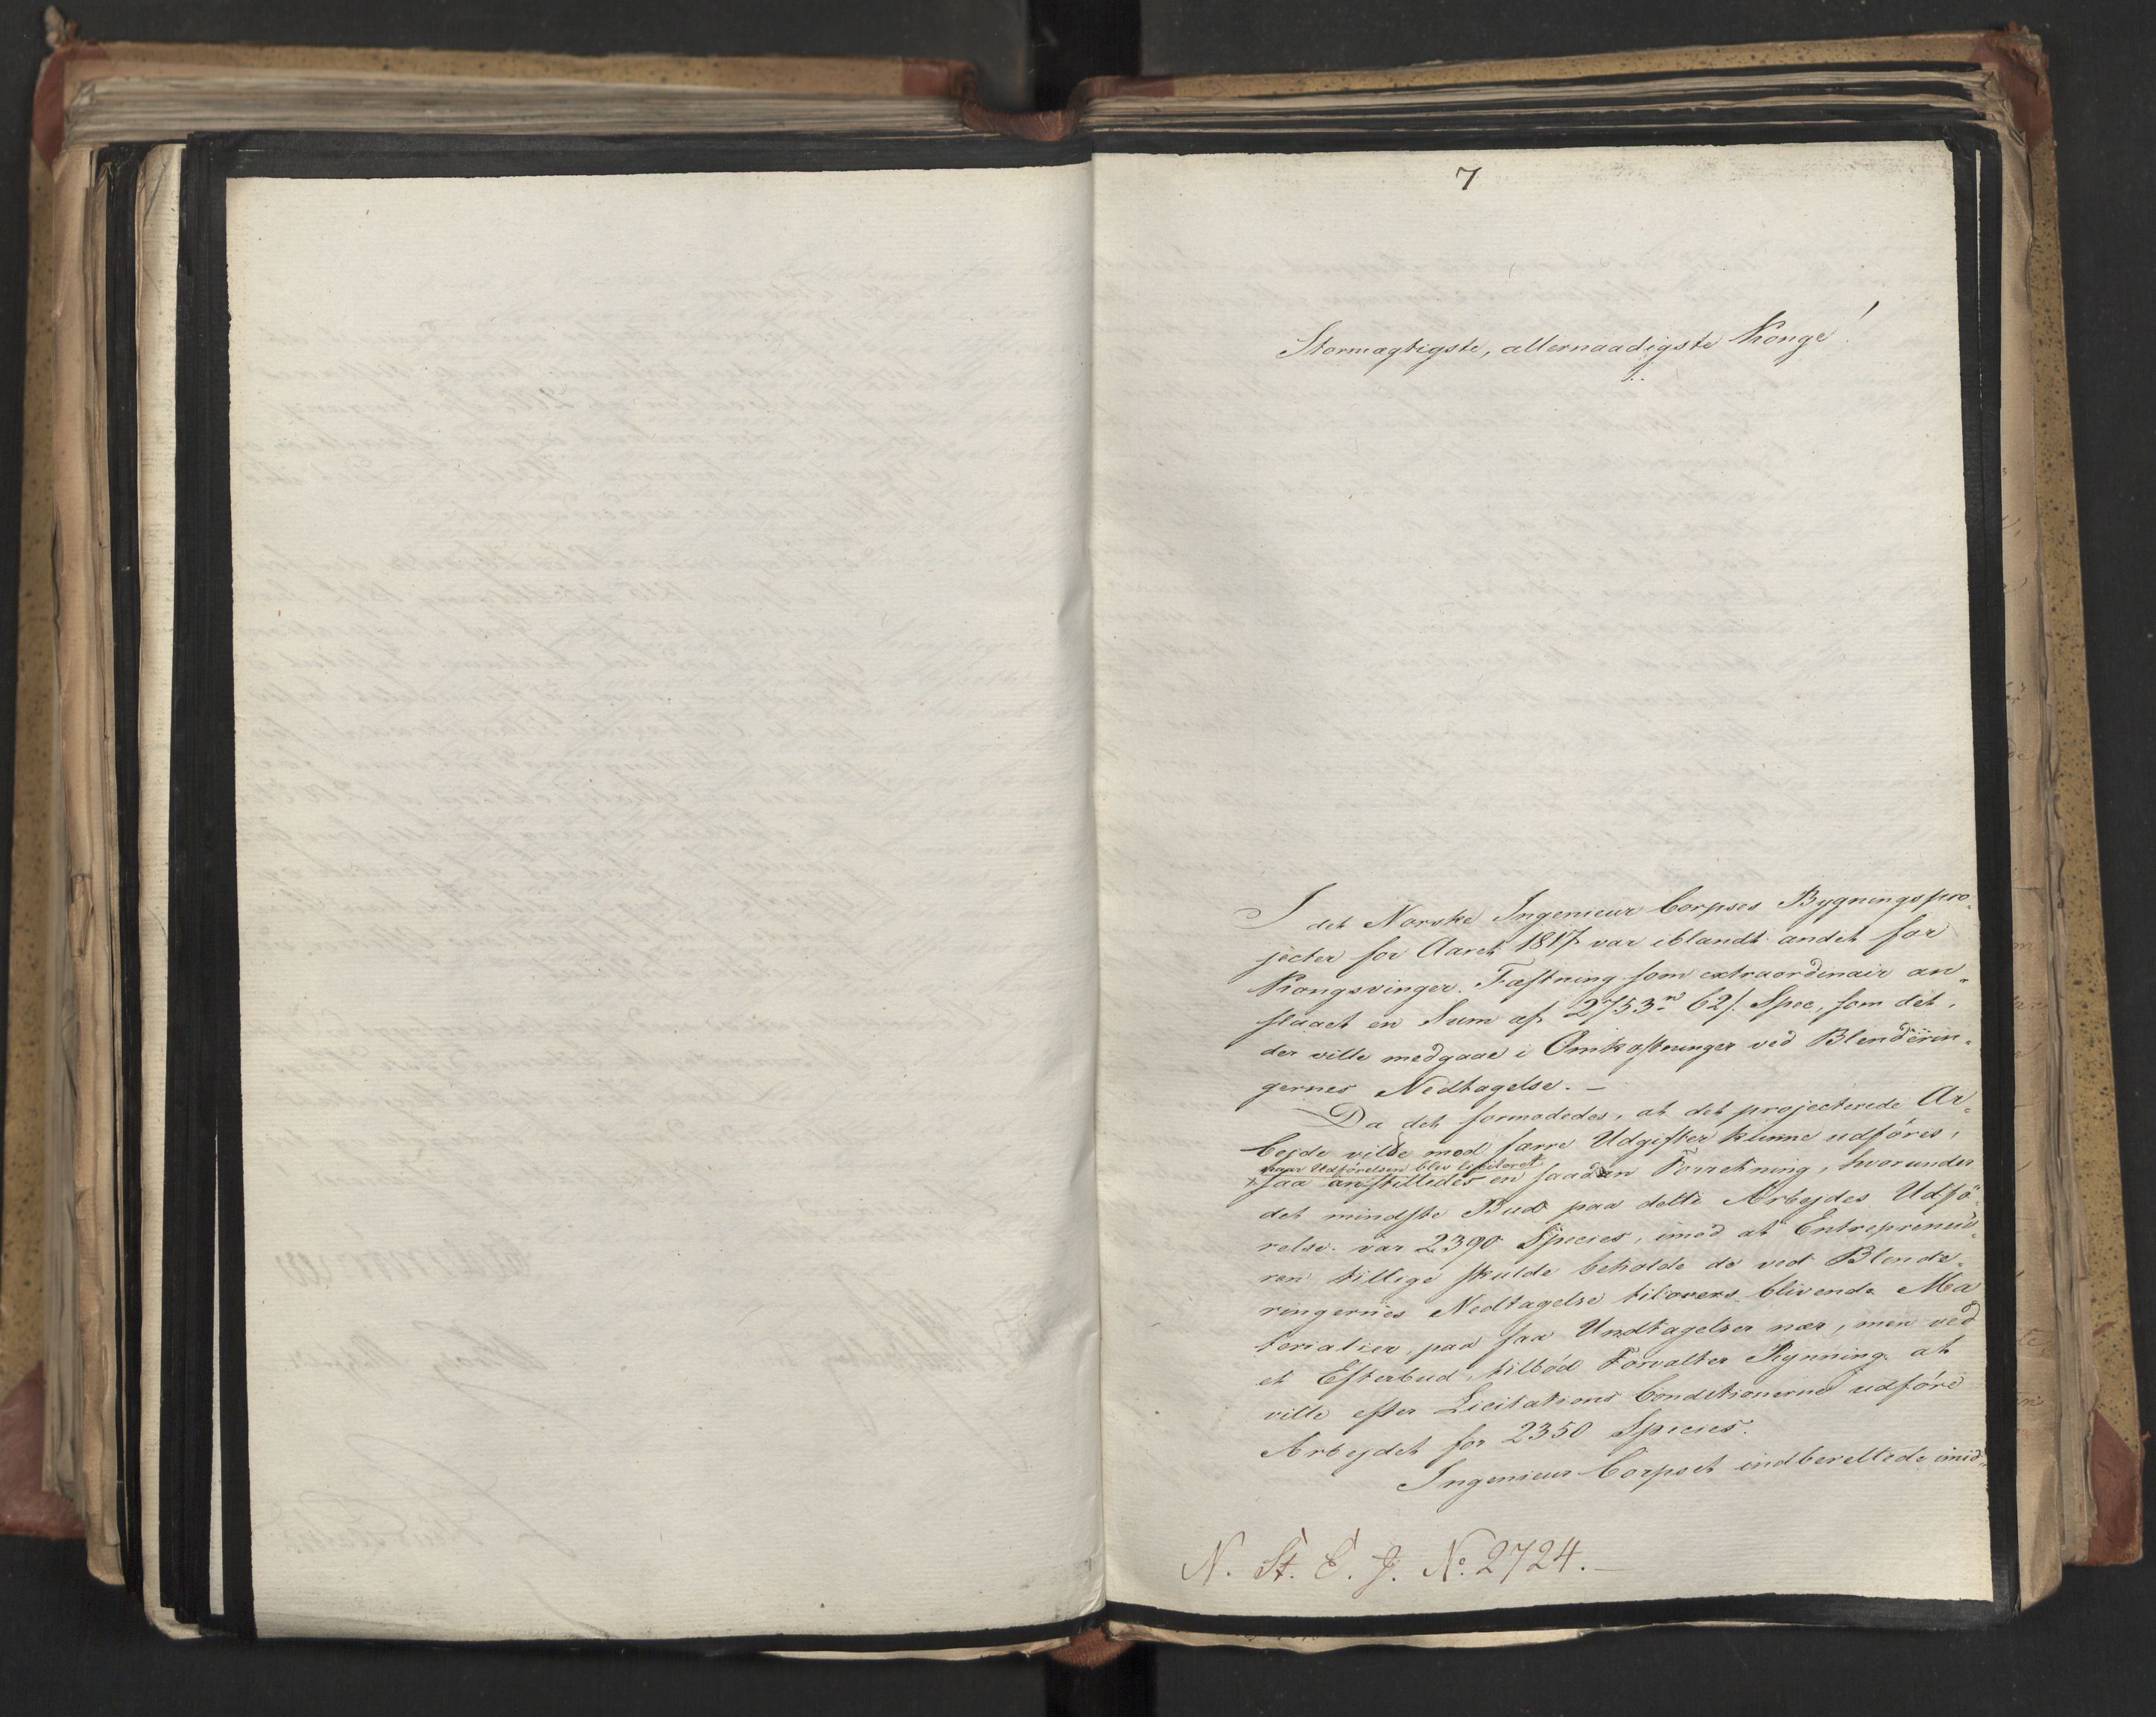 7
Stormægtigste, allernaadigste Konge!
I det Norske Ingenieur Corpses Bygningspro-
jecter for Aaret 1817 var iblandt andet for
Kongsvinger Fæstning som extraordinair an-
slaaet en Sum af 2753 62 s. Spec, som det,
der ville medgaae i Omkostninger ved Blenderin-
gernes Nedtagelse. –
Da det formodedes, at det projecterede Ar-
bejde vilde mod færre Udgifter kunne udföres,
naar Udförelsen blev liciteret
saa anstilledes en saadan Forretning, hvorunder
det mindste Bud paa dette Arbejdes Udfö-
relse var 2390 Species, imod at Entrepreneu-
ren tillige skulde beholde de ved Blende-
ringernes Nedtagelse tilovers blivende Ma
terialier, paa faa Undtagelser nær, men ved
et Efterbud tilböd Forvalter Rynning at
ville efter Licitations Conditionerne udföre
Arbejdet for 2350 Species.
Ingenieur Corpset indberettede imid-
N. St. E. J. No. 2724. –